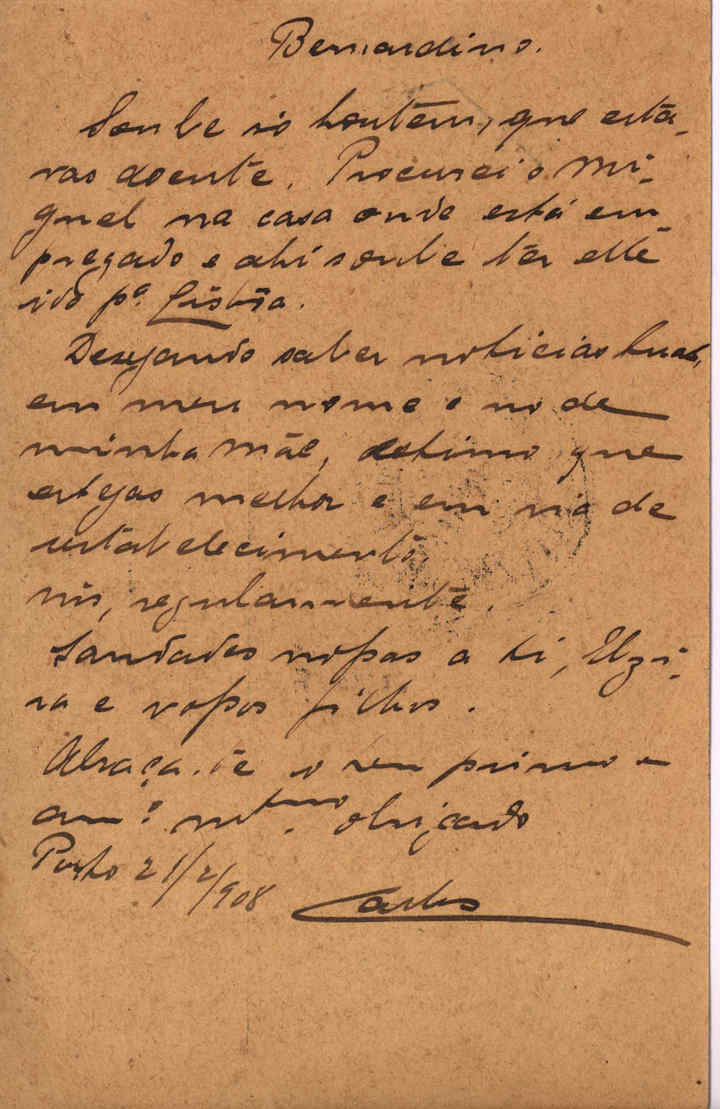 Bernardino.
Soube só hontem, que esta-
vas doente. Procurei o Mi-
guel na casa onde está em
pregado e ahi soube ter elle
ido pª. Lisbôa.
Desejando saber noticias tuas,
em meu nome e no de
minha Mãe, estimo que
estejas melhor e em via de
restabelecimento.
Nós, regularmente.
Saudades nossas a ti, Elzi-
ra e vossos filhos.
Abraça-te o teu primo e
amº. mtmo. obrigado
Porto 21/2/908 Carlos